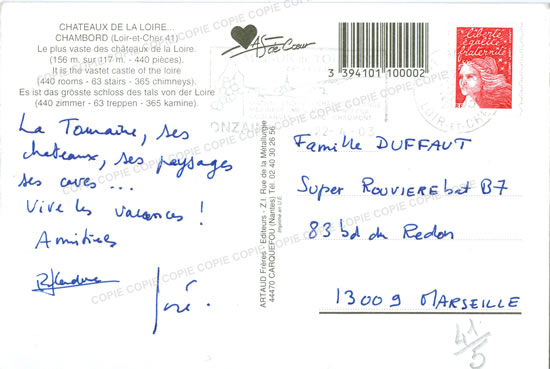 CHATEAUX DE LA LOIRE...
CHAMBORD (Loir-et-Cher 41)
Le plus vaste des châteaux de la Loire.
(156 m. sur 117 m. - 440 pièces).
It is the vastet castle of the loire
(440 rooms - 63 stairs - 365 chimneys).
Es ist das grösste schloss des tals von der Loire
(440 zimmer - 63 treppen - 365 kamine).
As de Cœur
3 394101 100002
liberté
égalité
fraternité
RF
ONZAIN
22-4-03
LOIR-ET-CHER
La Touraine, ses
chateaux, ses paysages
ses caves ...
Vive les vacances !
Amitiés
José.
ARTAUD Frères - Editeurs - Z.I. Rue de la Métallurgie
44470 CARQUEFOU (Nantes) Tél. 02 40 30 26 56
Imprimé en U.E.
Famille DUFFAUT
Super ROUVIERE bat B7
83 bd du Redon
13009 MARSEILLE
41/5
COPIE COPIE COPIE COPIE COPIE COPIE COPIE